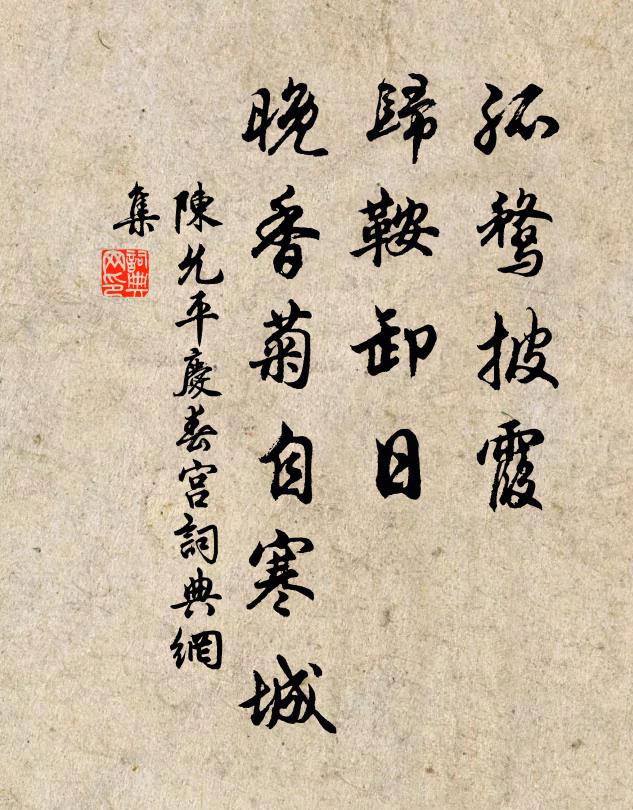 孤鶩披霞
歸鞍卸日
晚香菊自寒城
陳允平慶春宮詞典網
集
詞典
网印